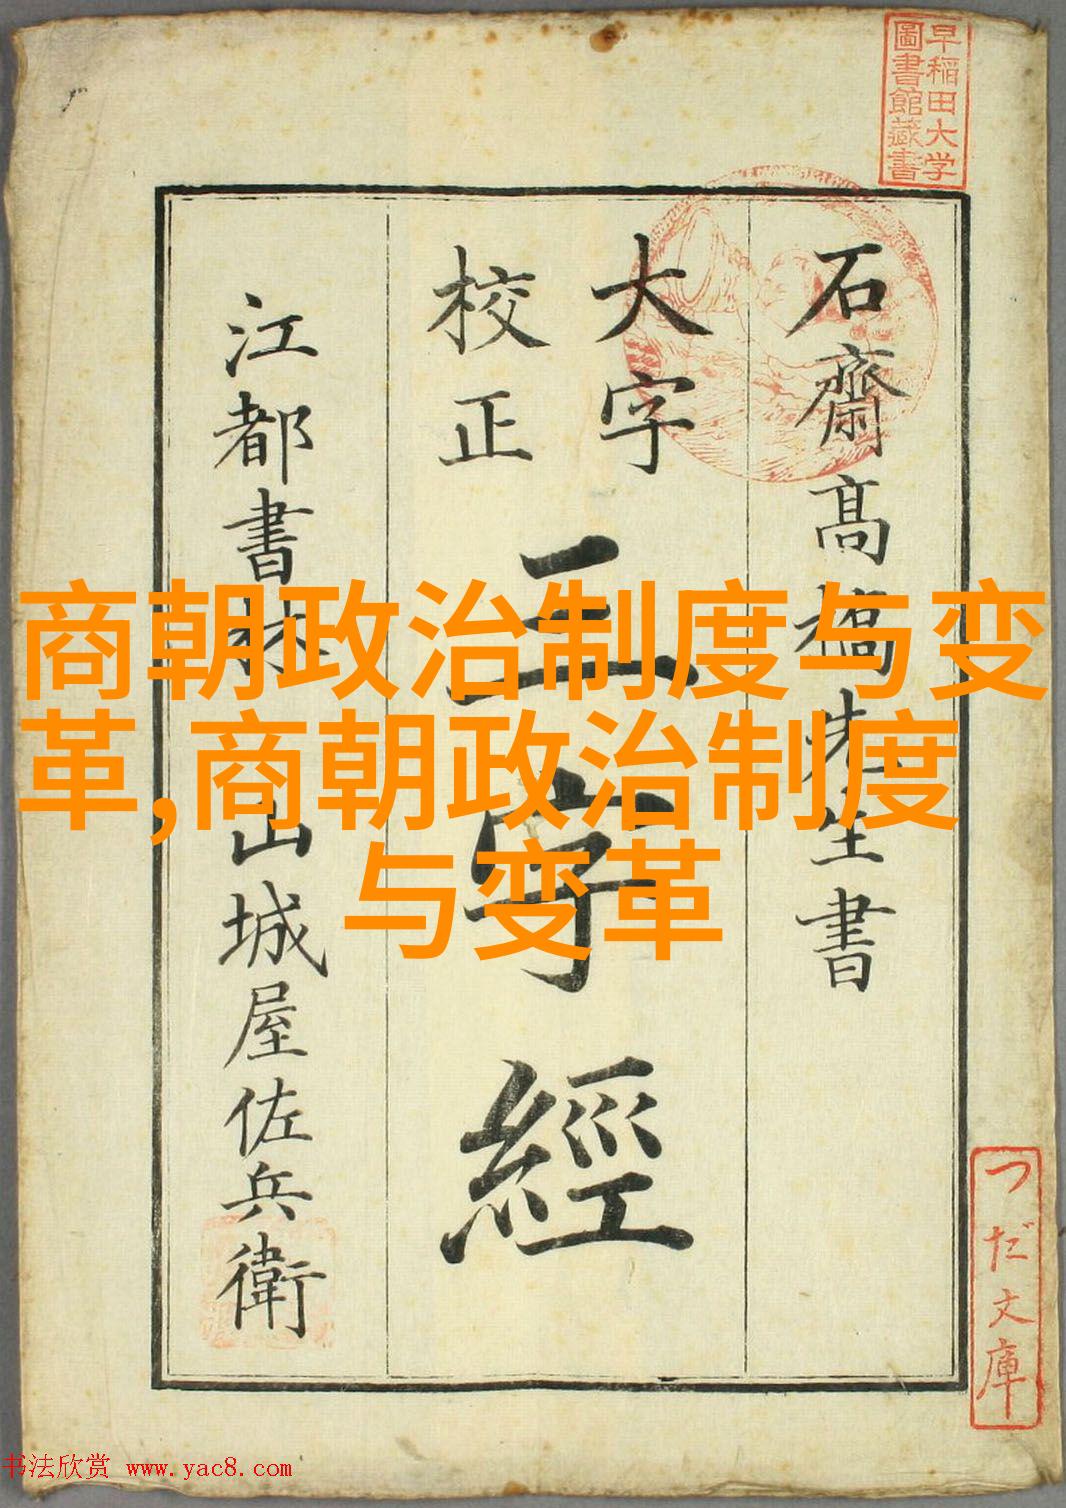 早稲田大学
圖書館藏書
石齋髙橋先生書
大字
校正
三字經
江都書林 山城屋佐兵衛
商朝政治制度与变
革,商朝政治制度
与变革
つだ文庫
书法欣赏 www.yac8.com